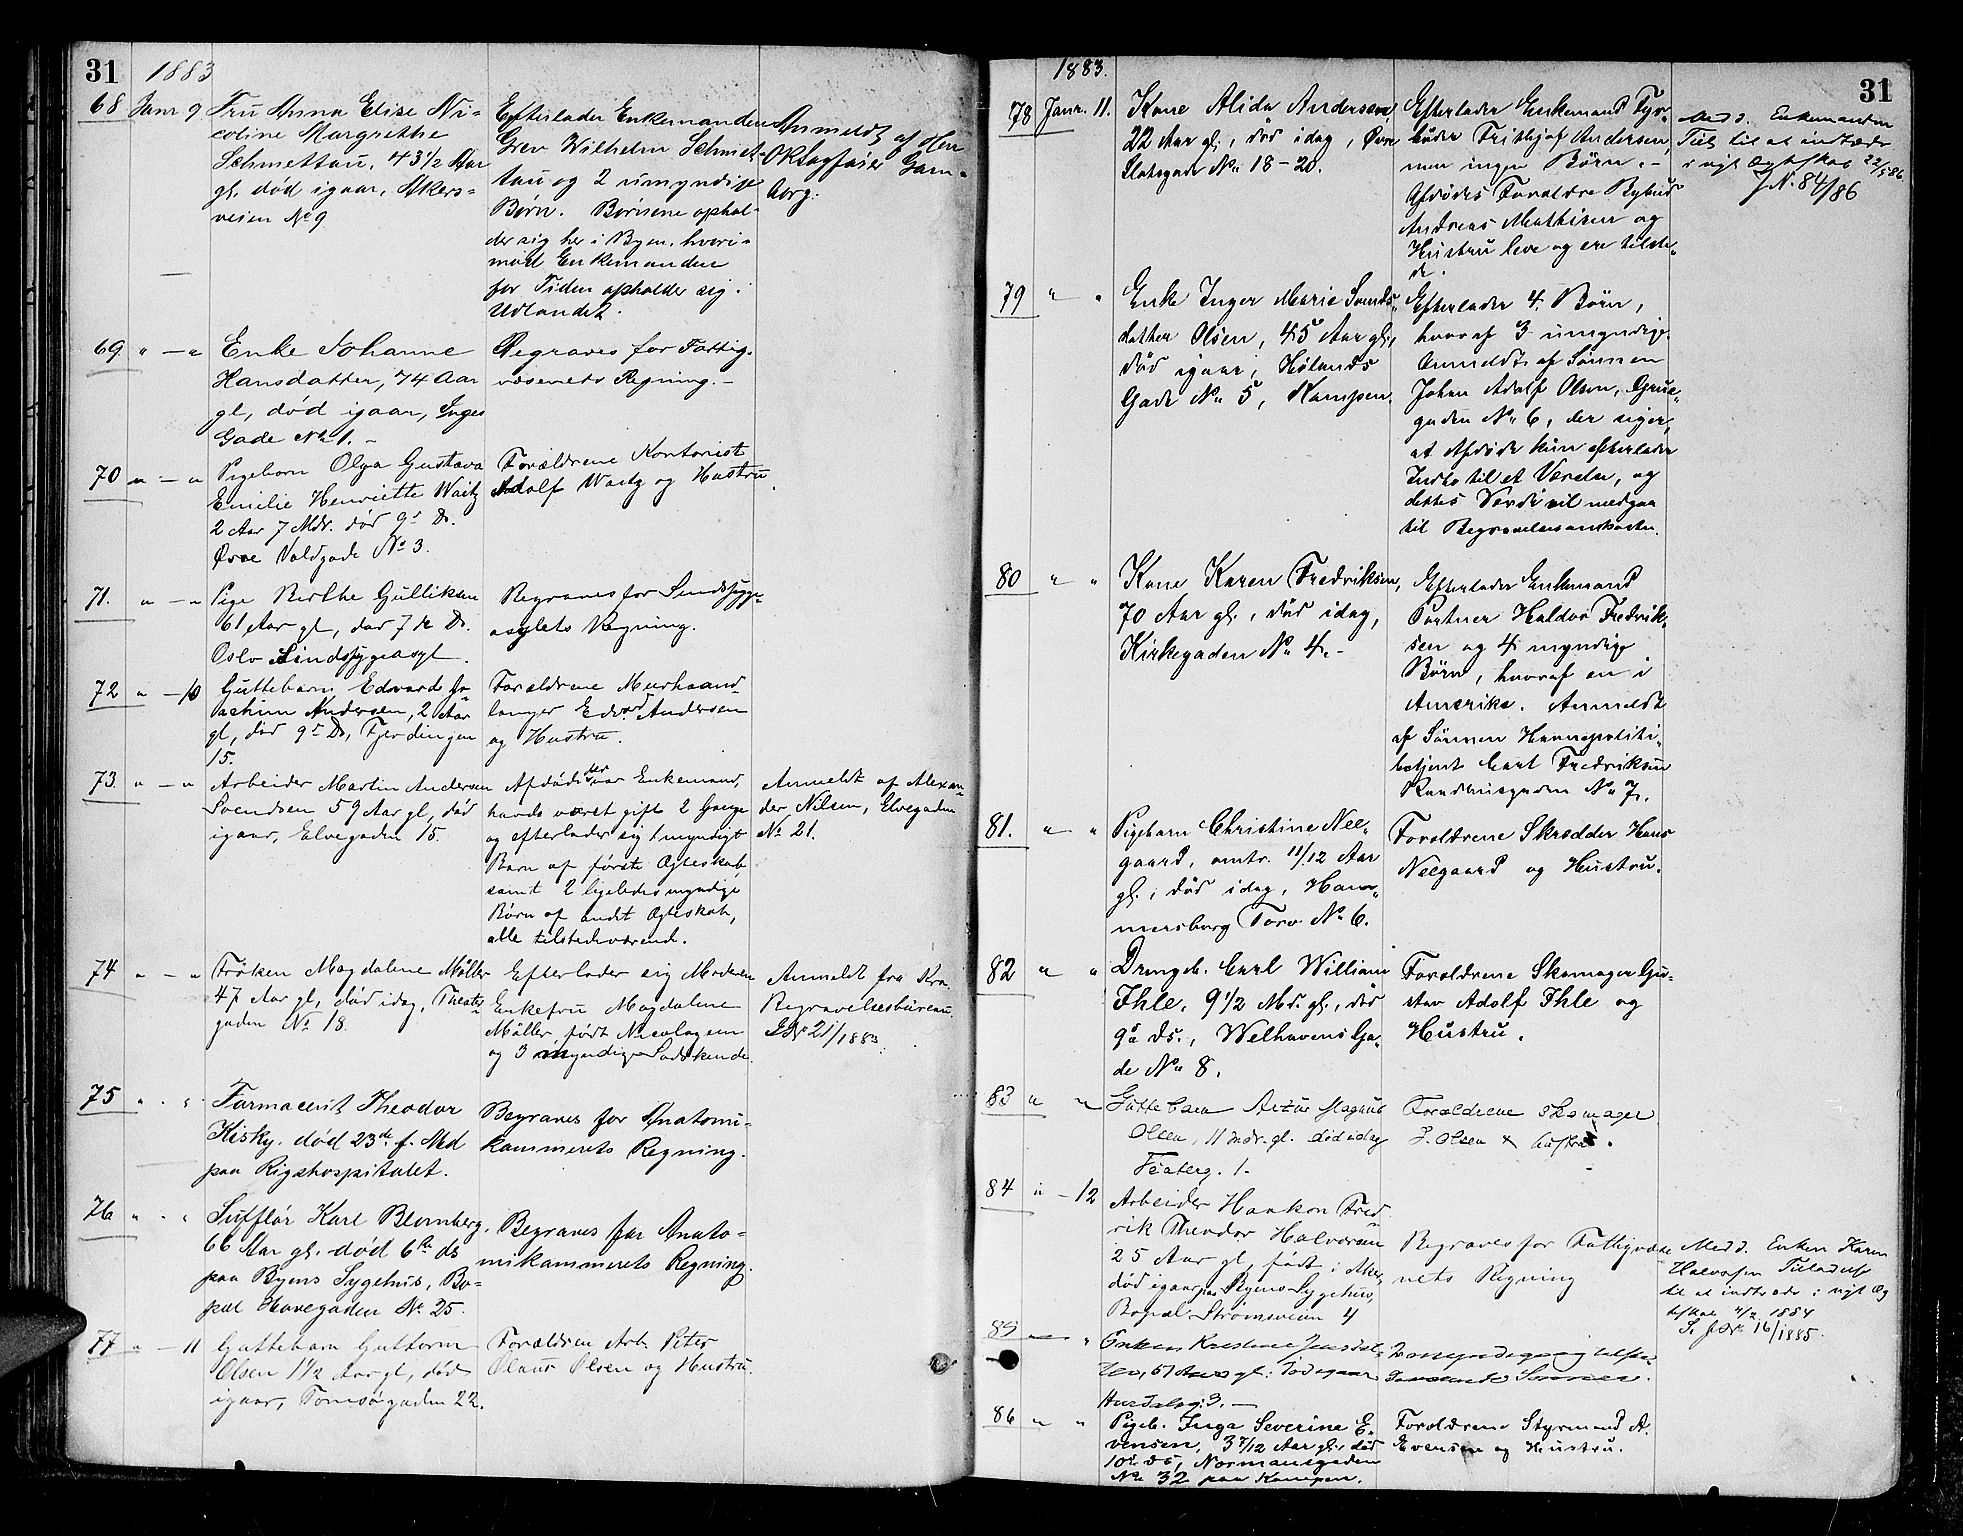 31 1883
68 Janr 9 Fru Anna Elise Ni-
coline Margrethe
Schmettau, 43 1/2 Aar
gl. død igaar, Akers-
veien No 9.
Efterlader Enkemanden
Grev Wilhelm Schmet-
tau og 2 umyndige
Børn. Børnene ophol-
der sig her i Byen, hveri-
mod Enkemanden
for Tiden opholder sig i
Udlandet.
Anmeldt af Herr
Gam-
borg.
69 " — " Enke Johanne
Hansdatter, 74 Aar
gl, død igaar, Enges
Gade No 1. -
Begraves for Fattig-
væsenets Regning. -
70 " — " Pigebarn Olga Gustava
Emilie Henriette Waitz
2 Aar 7 Mdr. død 9de Ds.
Øvre Voldgade No 3.
Forældrene Kontorist
Adolf Waitz og Hustru.
71. " — " Pige Berthe Gulliksen
61 Aar gl, død 7de Ds.
Oslo Sindsygeasyl.
Begraves for Sindssyge-
asylets Regning.
72 " — 10 Guttebarn Edvard Jo-
achim Andersen, 2 Aar
gl, død 9de Ds, Fjerdingen
15.
Forældrene Murhaand-
langer Edvard Andersen
og Hustru.
73. " — " Arbeider Martin Andersen
Svendsen 59 Aar gl, død
igaar, Elvegaden 15.
Afdøde var Enkemand,
havde været gift 2 Gange
og efterlader sig 1 myndigt
Barn af første Ægteskab,
samt 2 ligeledes myndige
Børn af andet Ægteskab,
alle tilstedeværende.
Anmeldt af Alexan-
der Nilsen, Elvegaden
No 21.
74 " — " Frøken Magdalene Møller
47 Aar gl, død idag, Theater-
gaden No 18.
Efterlader sig Moderen
Enkefru Magdalene
Møller, født Nicolaysen
og 3 myndige Sødskende.
Anmeldt fra Kra
Begravelsesbureau.
21/1883.
75 " . " Farmaceut Theodor
Kisky, død 23de f. Md
paa Rigshospitalet.
Begraves for Anatomi-
kammerets Regning.
76 " . " Sufflør Karl Blomberg,
66 Aar gl. død 6te ds
paa Byens Sygehus, Bo-
pæl Havegaden No 25.
Begraves for Anato-
mikammerets Regning.
77 " — 11 Guttebarn Guttorm
Olsen 1 1/2 Aar gl, død
igaar, Tomtøgaden 22.
Forældren Arb. Peter
Olaus Olsen og Hustru.
1883. 31
78 Janr. 11. Kone Alida Andersen
22 Aar gl., død idag, Øvre
Slotsgade No 18-20.
Efterlader Enkemand Fyr-
bøder Frithjof Andersen,
men ingen Børn. -
Afdødes Forældre Bybud
Andreas Mathisen og
Hustru leve og ere tilste-
de.
Medd. Enkemanden
Till. til at indtræde
i nyt Ægteskab 22/5 86
J.N. 84/86
79 " " Enke Inger Marie Svends-
datter Olsen, 45 Aar gl.,
død igaar, Hølands
Gade No 5, Kampen.
Efterlader 4 Børn,
hvoraf 3 umyndige.
Anmeldt af Sønnen
Johan Adolf Olsen, Grue-
gaden No 6, der siger,
at Afdøde kun efterlader
Indbo til et Værelse, og
dettes Værdi vil medgaa
til Begravelsesomkostn.
80 " " Kone Karen Fredriksen,
70 Aar gl., død idag,
Kirkegaden No 4. -
Efterlader Enkemand
Portner Haldor Fredrik-
sen og 4 myndige
Børn, hvoraf en i
Amerika. Anmeldt
af Sønnen Havnepoliti-
betjent Carl Fredriksen
Raadhusgaden No 7.
81. " " Pigebarn Christine Nee-
gaard, omtr. 11/12 Aar
gl., død idag, Ham-
mersborg Torv No 6.
Forældrene Skrædder Hans
Neegaard og Hustru.
82 " " Drengeb. Carl William
Ihle, 9 1/2 Md. gl., død
9de ds., Welhavens Ga-
de No 8.
Forældrene Skomager Gu-
stav Adolf Ihle og
Hustru.
83 " " Guttebarn Artur Magnus
Olsen, 11 mdr. gl. død idag
Teaterg. 1.
Forældrene skomager
J. Olsen & hustru.
84 " — 12 Arbeider Haakon Fred-
rik Theodor Halvorsen
25 Aar gl, født i Aker,
død igaar paa Byens Sygehus,
Bopæl Strømsveien 4
Begraves for Fattigvæse-
nets Regning
Medd. Enken Karen
Halvorsen Tilladelse
til at indtræde i nyt Æg-
teskab 4/2 1884
16/1885.
85 — " Enken Kristine
51 Aar gl. død igaar
Hurdalsg. 3. —
2 myndige
Sønner.
86 " " Pigeb. Inga Severine E-
vensen, 3 7/12 Aar gl., død
10de ds, Normansgaden
No 32 paa Kampen.
Forældrene Styrmand A.
Evensen og Hustru.